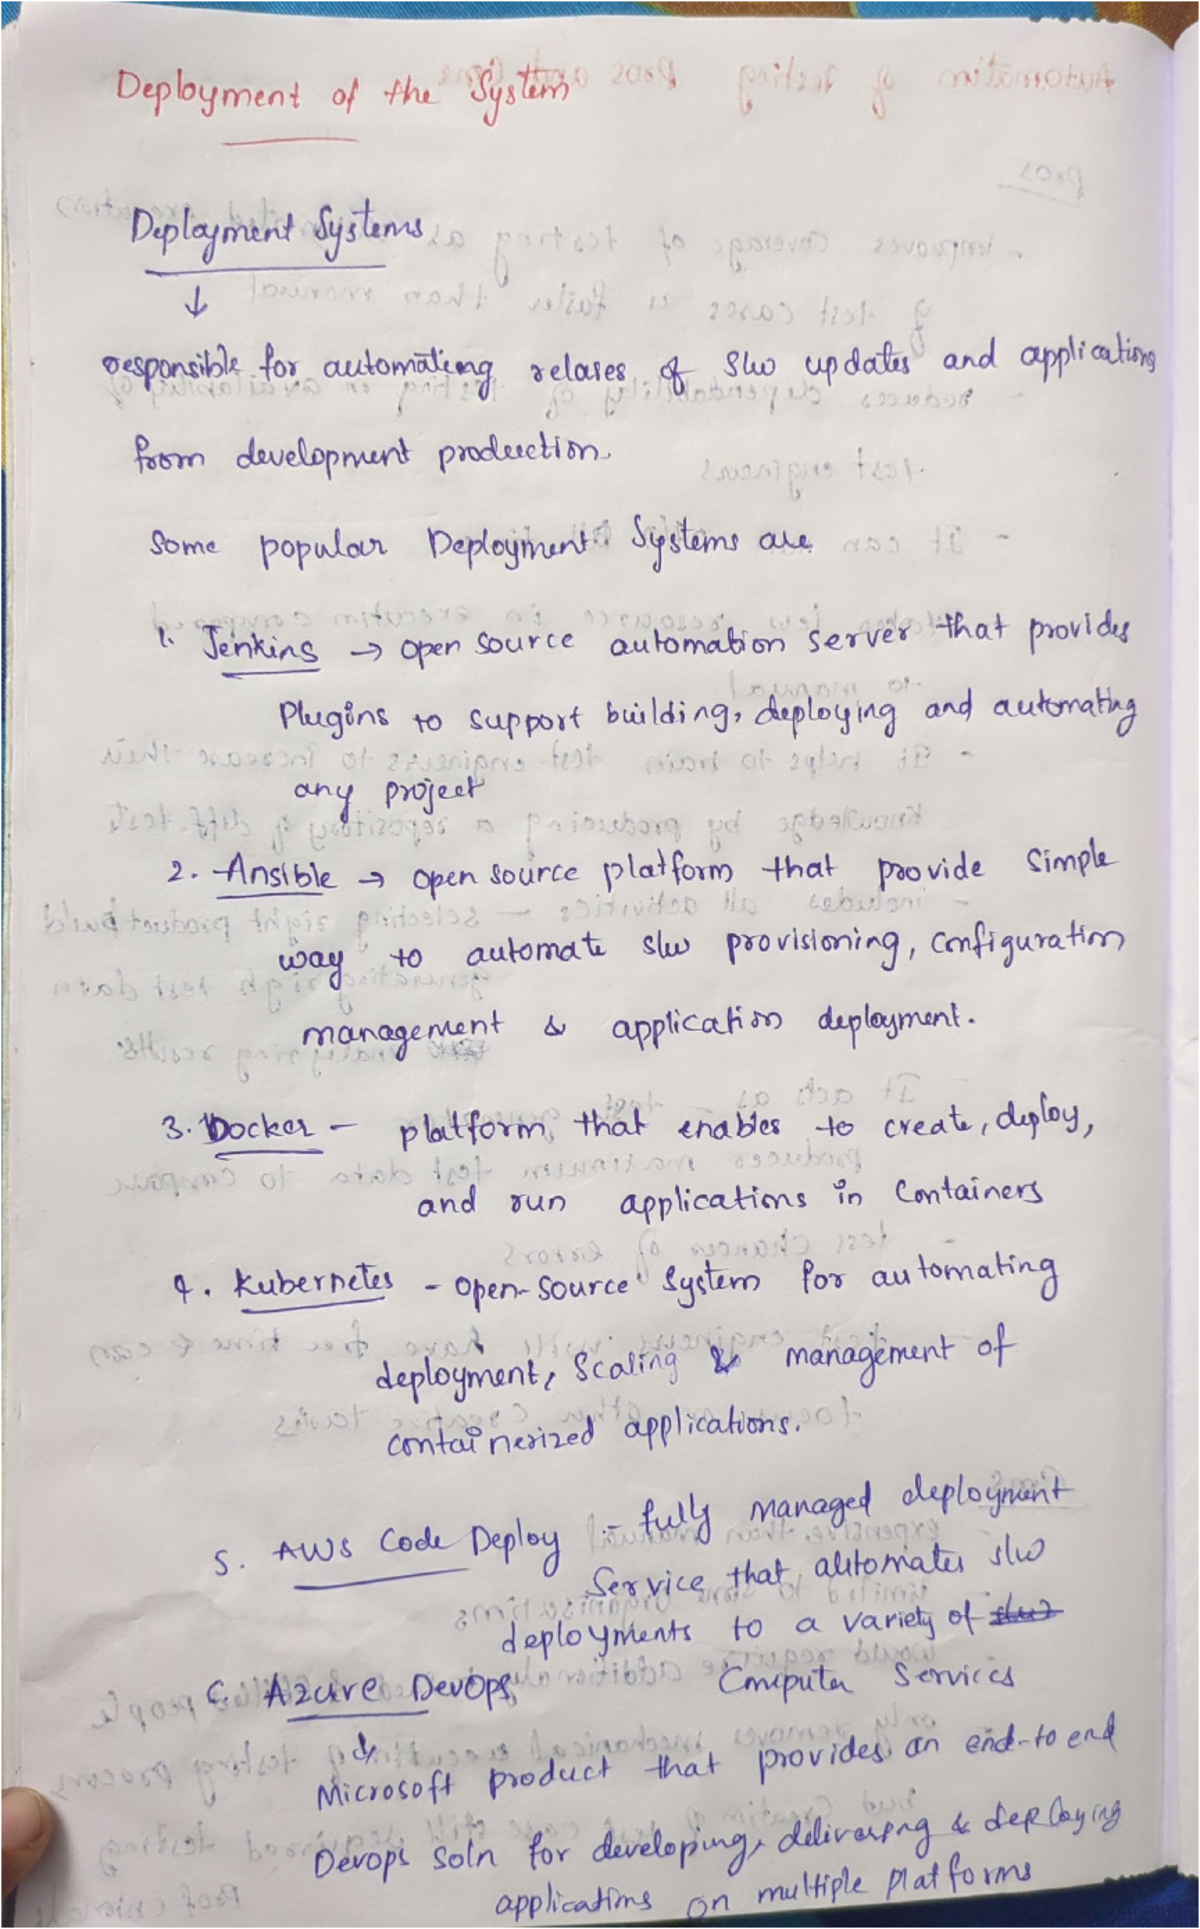 Deployment of the System
Deployment Systems
↓
responsible for automating relases of s/w updates and applications
from development production.
Some popular Deployment Systems are
1. Jenkins → open source automation server that provides
Plugins to support building, deploying and automating
any project
2. Ansible → open source platform that provide simple
way to automate s/w provisioning, configuration
management & application deployment.
3. Docker - platform that enables to create, deploy,
and run applications in containers
4. Kubernetes - open-source system for automating
deployment, scaling & management of
containerized applications.
5. AWS Code Deploy - fully managed deployment
Service that automates s/w
deployments to a variety of
Computer Services
6. Azure DevOps
↓
Microsoft product that provides an end-to end
Devops soln for developing, delivering & deploying
applications on multiple platforms